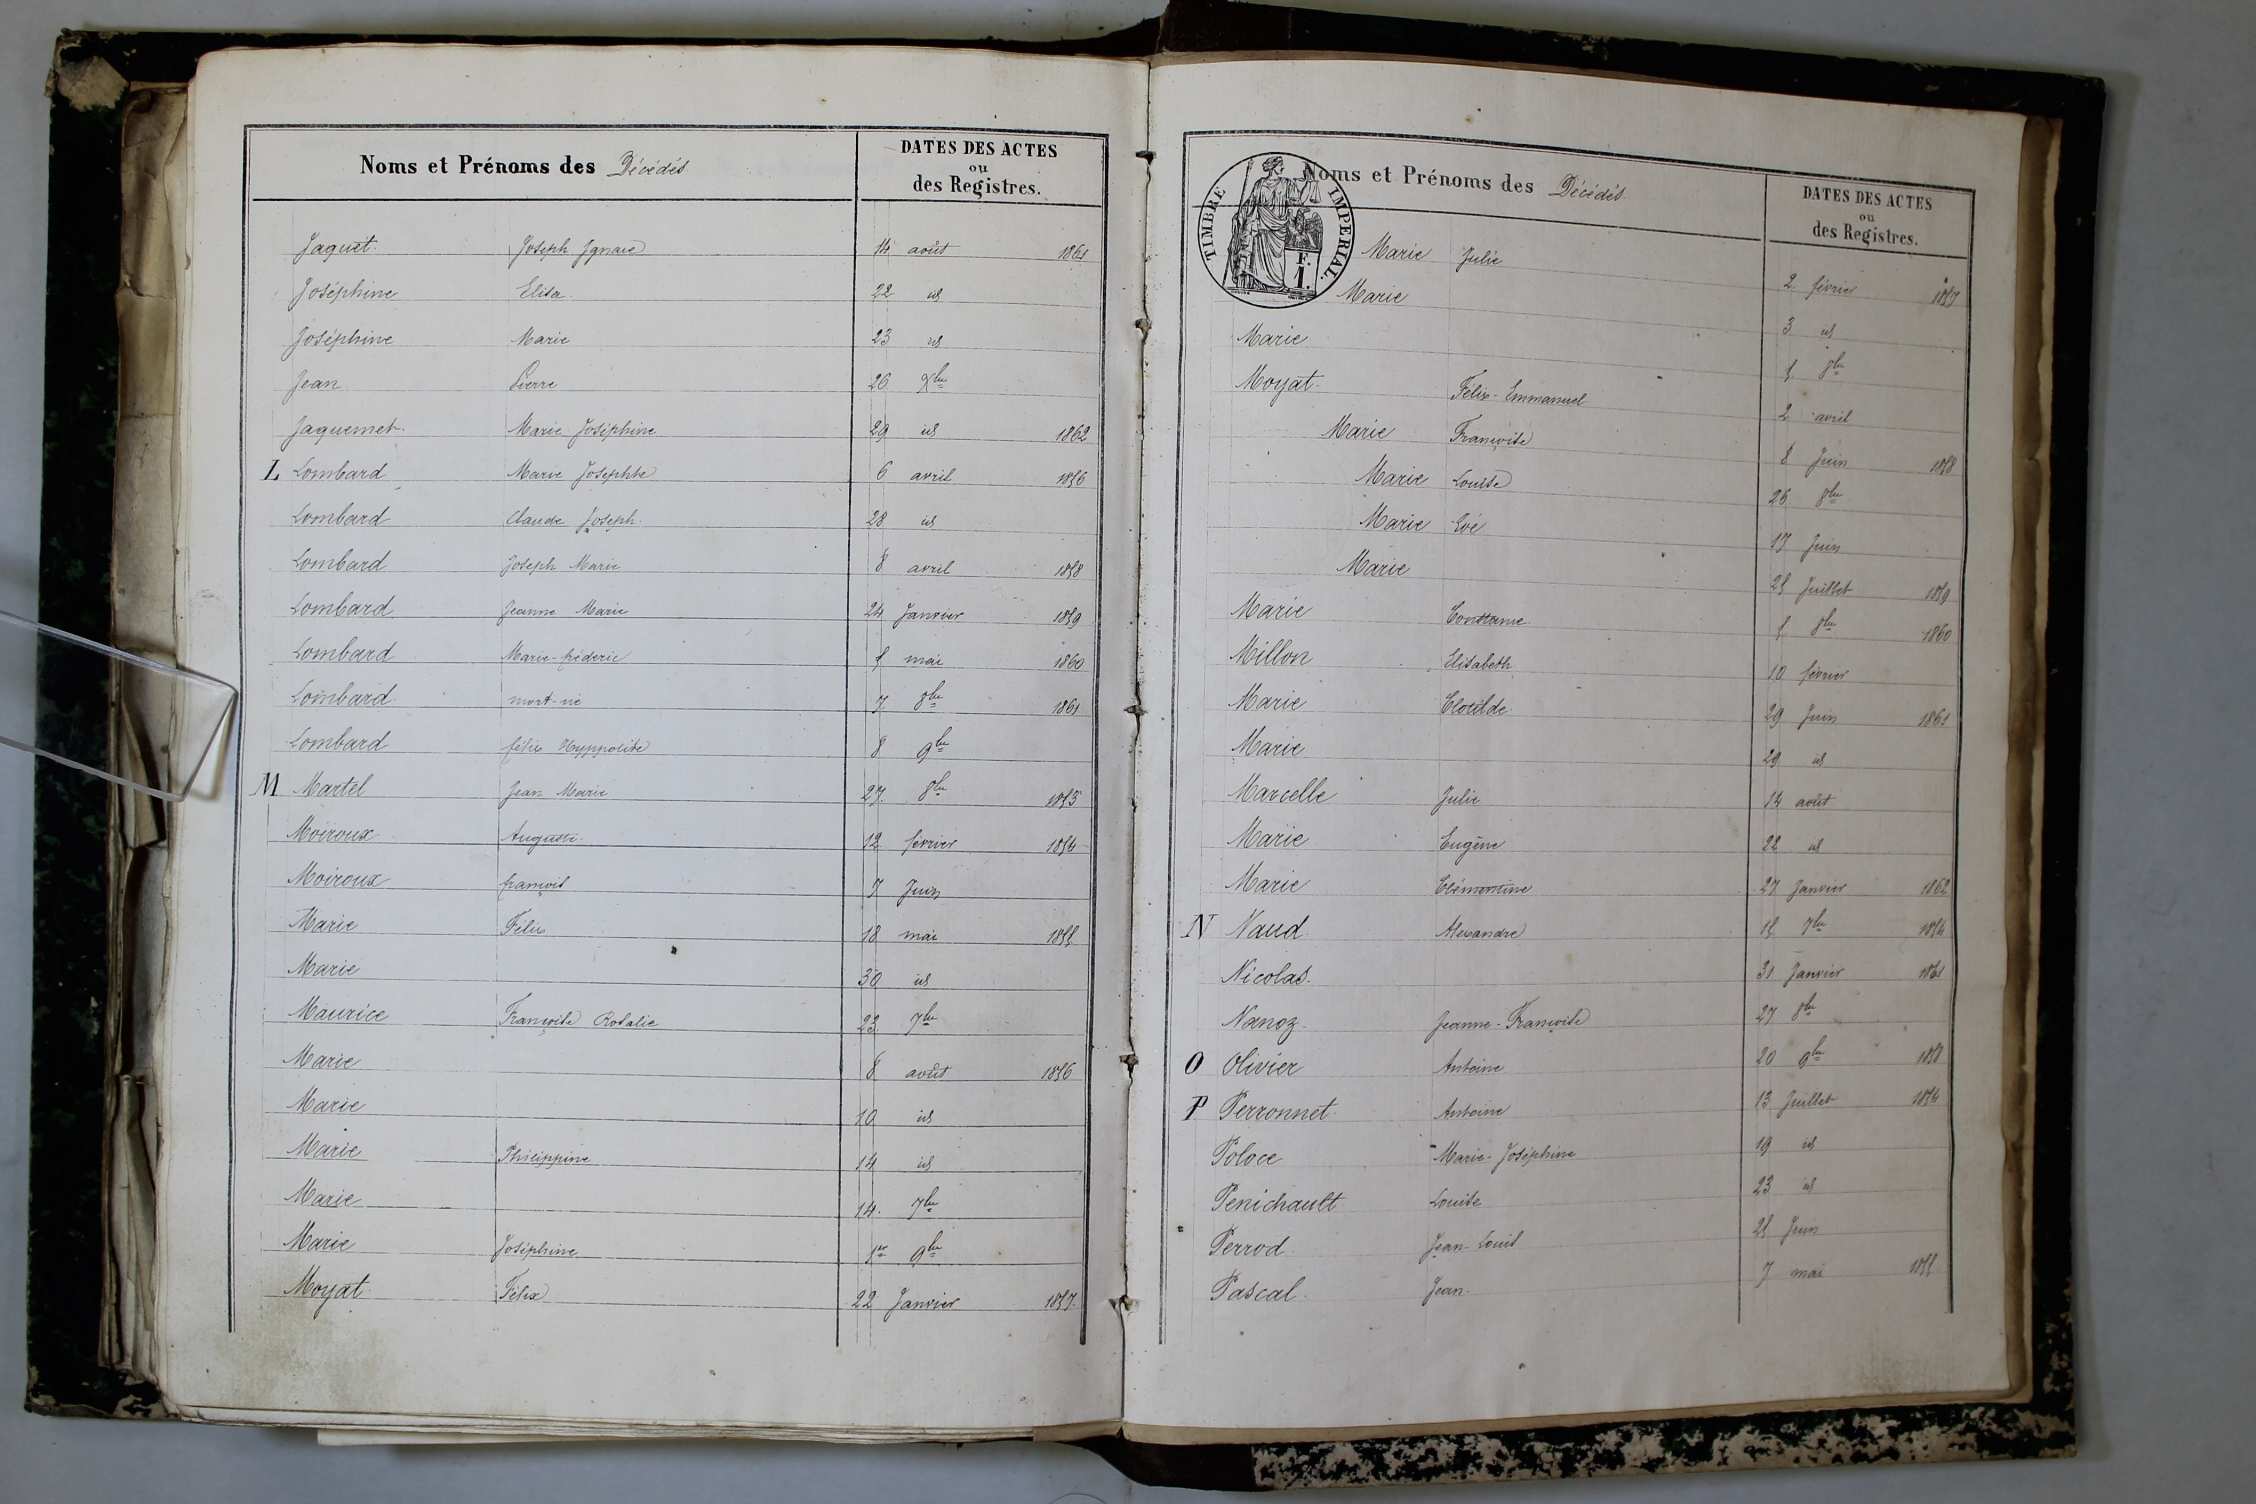 Noms et Prénoms des Décédés
DATES DES ACTES
ou
des Registres.
Jaquet. Joseph Ignace 14 août 1861
Joséphine Elisa 22 id
Joséphine Marie 23 id
Jean Pierre 26 Xbre
Jaquemet Marie Joséphine 29 id 1862
L Lombard Marie Josephte 6 avril 1856
Lombard Claude Joseph. 28 id
Lombard Joseph Marie 8 avril 1858
Lombard Jeanne Marie 24 Janvier 1859
Lombard Marie-fréderic 5 mai 1860
Lombard mort-né 7 8bre 1861
Lombard félix Hyppolite 8 9bre
M Martel Jean Marie 27 8bre 1853
Moiroux Auguste 12 février 1854
Moiroux françois 7 Juin
Marie Félix 18 mai 1855
Marie 30 id
Maurice Françoise Rosalie 23 7bre
Marie 8 août 1856
Marie 10 id
Marie Philippine 14 id
Marie 14. 7bre
Marie Joséphine 1er 9bre
Moyat Félix 22 Janvier 1857.
TIMBRE IMPERIAL.
F.
1.
Noms et Prénoms des Décédés.
DATES DES ACTES
ou
des Registres.
Marie Julie 2 février 1857
Marie 3 id
Marie 5 8bre
Moyat Félix-Emmanuel 2 avril
Marie Françoise 8 Juin 1858
Marie Louise 25 8bre
Marie Evé 17 Juin
Marie 25 Juillet 1859
Marie Constance 5 8bre 1860
Millon Elisabeth 10 février
Marie Clotilde 29 Juin 1861
Marie 29 id
Marcelle Julie 14 août
Marie Eugène 22 id
Marie Clémentine 27 Janvier 1862
N Naud Alexandre 15 7bre 1854
Nicolas. 31 Janvier 1861
Nanoz Jeanne-Françoise 27 8bre
O Olivier Antoine 20 9bre 1858
P Perronnet Antoine 13 Juillet 1854
Poloce Marie-Joséphine 19 id
Penichault Louise 23 id
Perrod Jean-Louis 25 Juin
Pascal. Jean 7 mai 1855